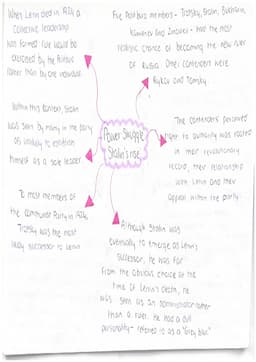 When Lenin died in 1924 a
collective leadership
was formed. Rule would be
decided by the Politburo
rather than by one individual.
Five Politburo members - Trotsky, Stalin, Bukharin,
Kamenev and Zinoviev - had the most
realistic chance of becoming the new ruler
of Russia. Other contenders were
Rykov and Tomsky
Within this context, Stalin
was seen by many in the party
as unlikely to establish
himself as a sole leader
Power Struggle
Stalin's rise
The contenders perceived
right to authority was rooted
in their revolutionary
record, their relationship
with Lenin and their
appeal within the party.
To most members of
the communist Party in 1924,
Trotsky was the most
likely successor to Lenin
Although Stalin was
eventually to emerge as Lenin's
successor, he was far
from the obvious choice at the
time of Lenin's death, he
was seen as an administrator rather
than a ruler. He had a dull
personality - referred to as a "Grey blur"